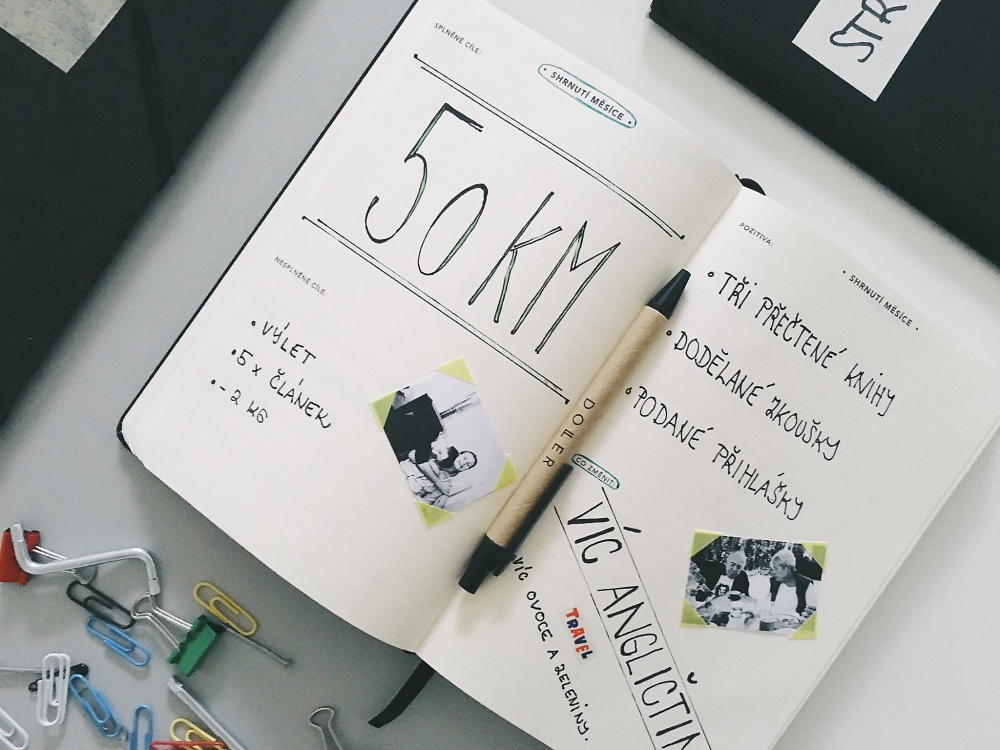 SPLNĚNÉ CÍLE:
• SHRNUTÍ MĚSÍCE •
50 KM
NESPLNĚNÉ CÍLE:
• VÝLET
• 5 x ČLÁNEK
• - 2 KG
DOFER
POZITIVA:
• SHRNUTÍ MĚSÍCE •
• TŘI PŘEČTENÉ KNIHY
• DODĚLANÉ ZKOUŠKY
• PODANÉ PŘIHLÁŠKY
CO ZMĚNIT:
VÍC ANGLIČTIN
VÍC OVOCE A ZELENINY.
TRAVEL
STR